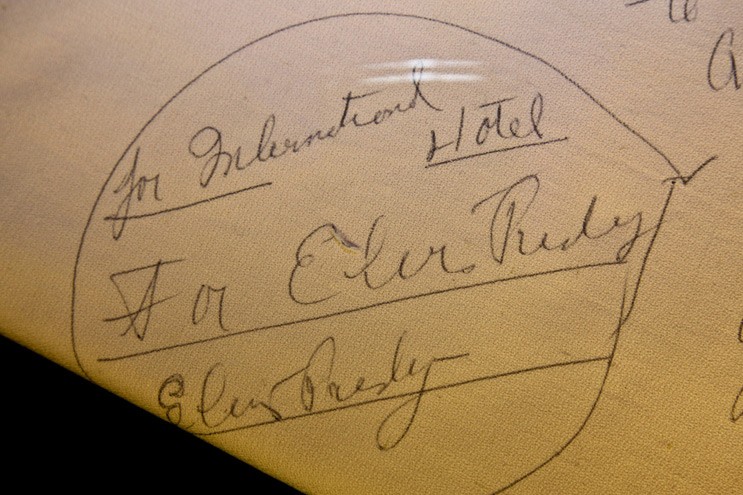 for International
Hotel
For Elvis Presley
Elvis Presley
to